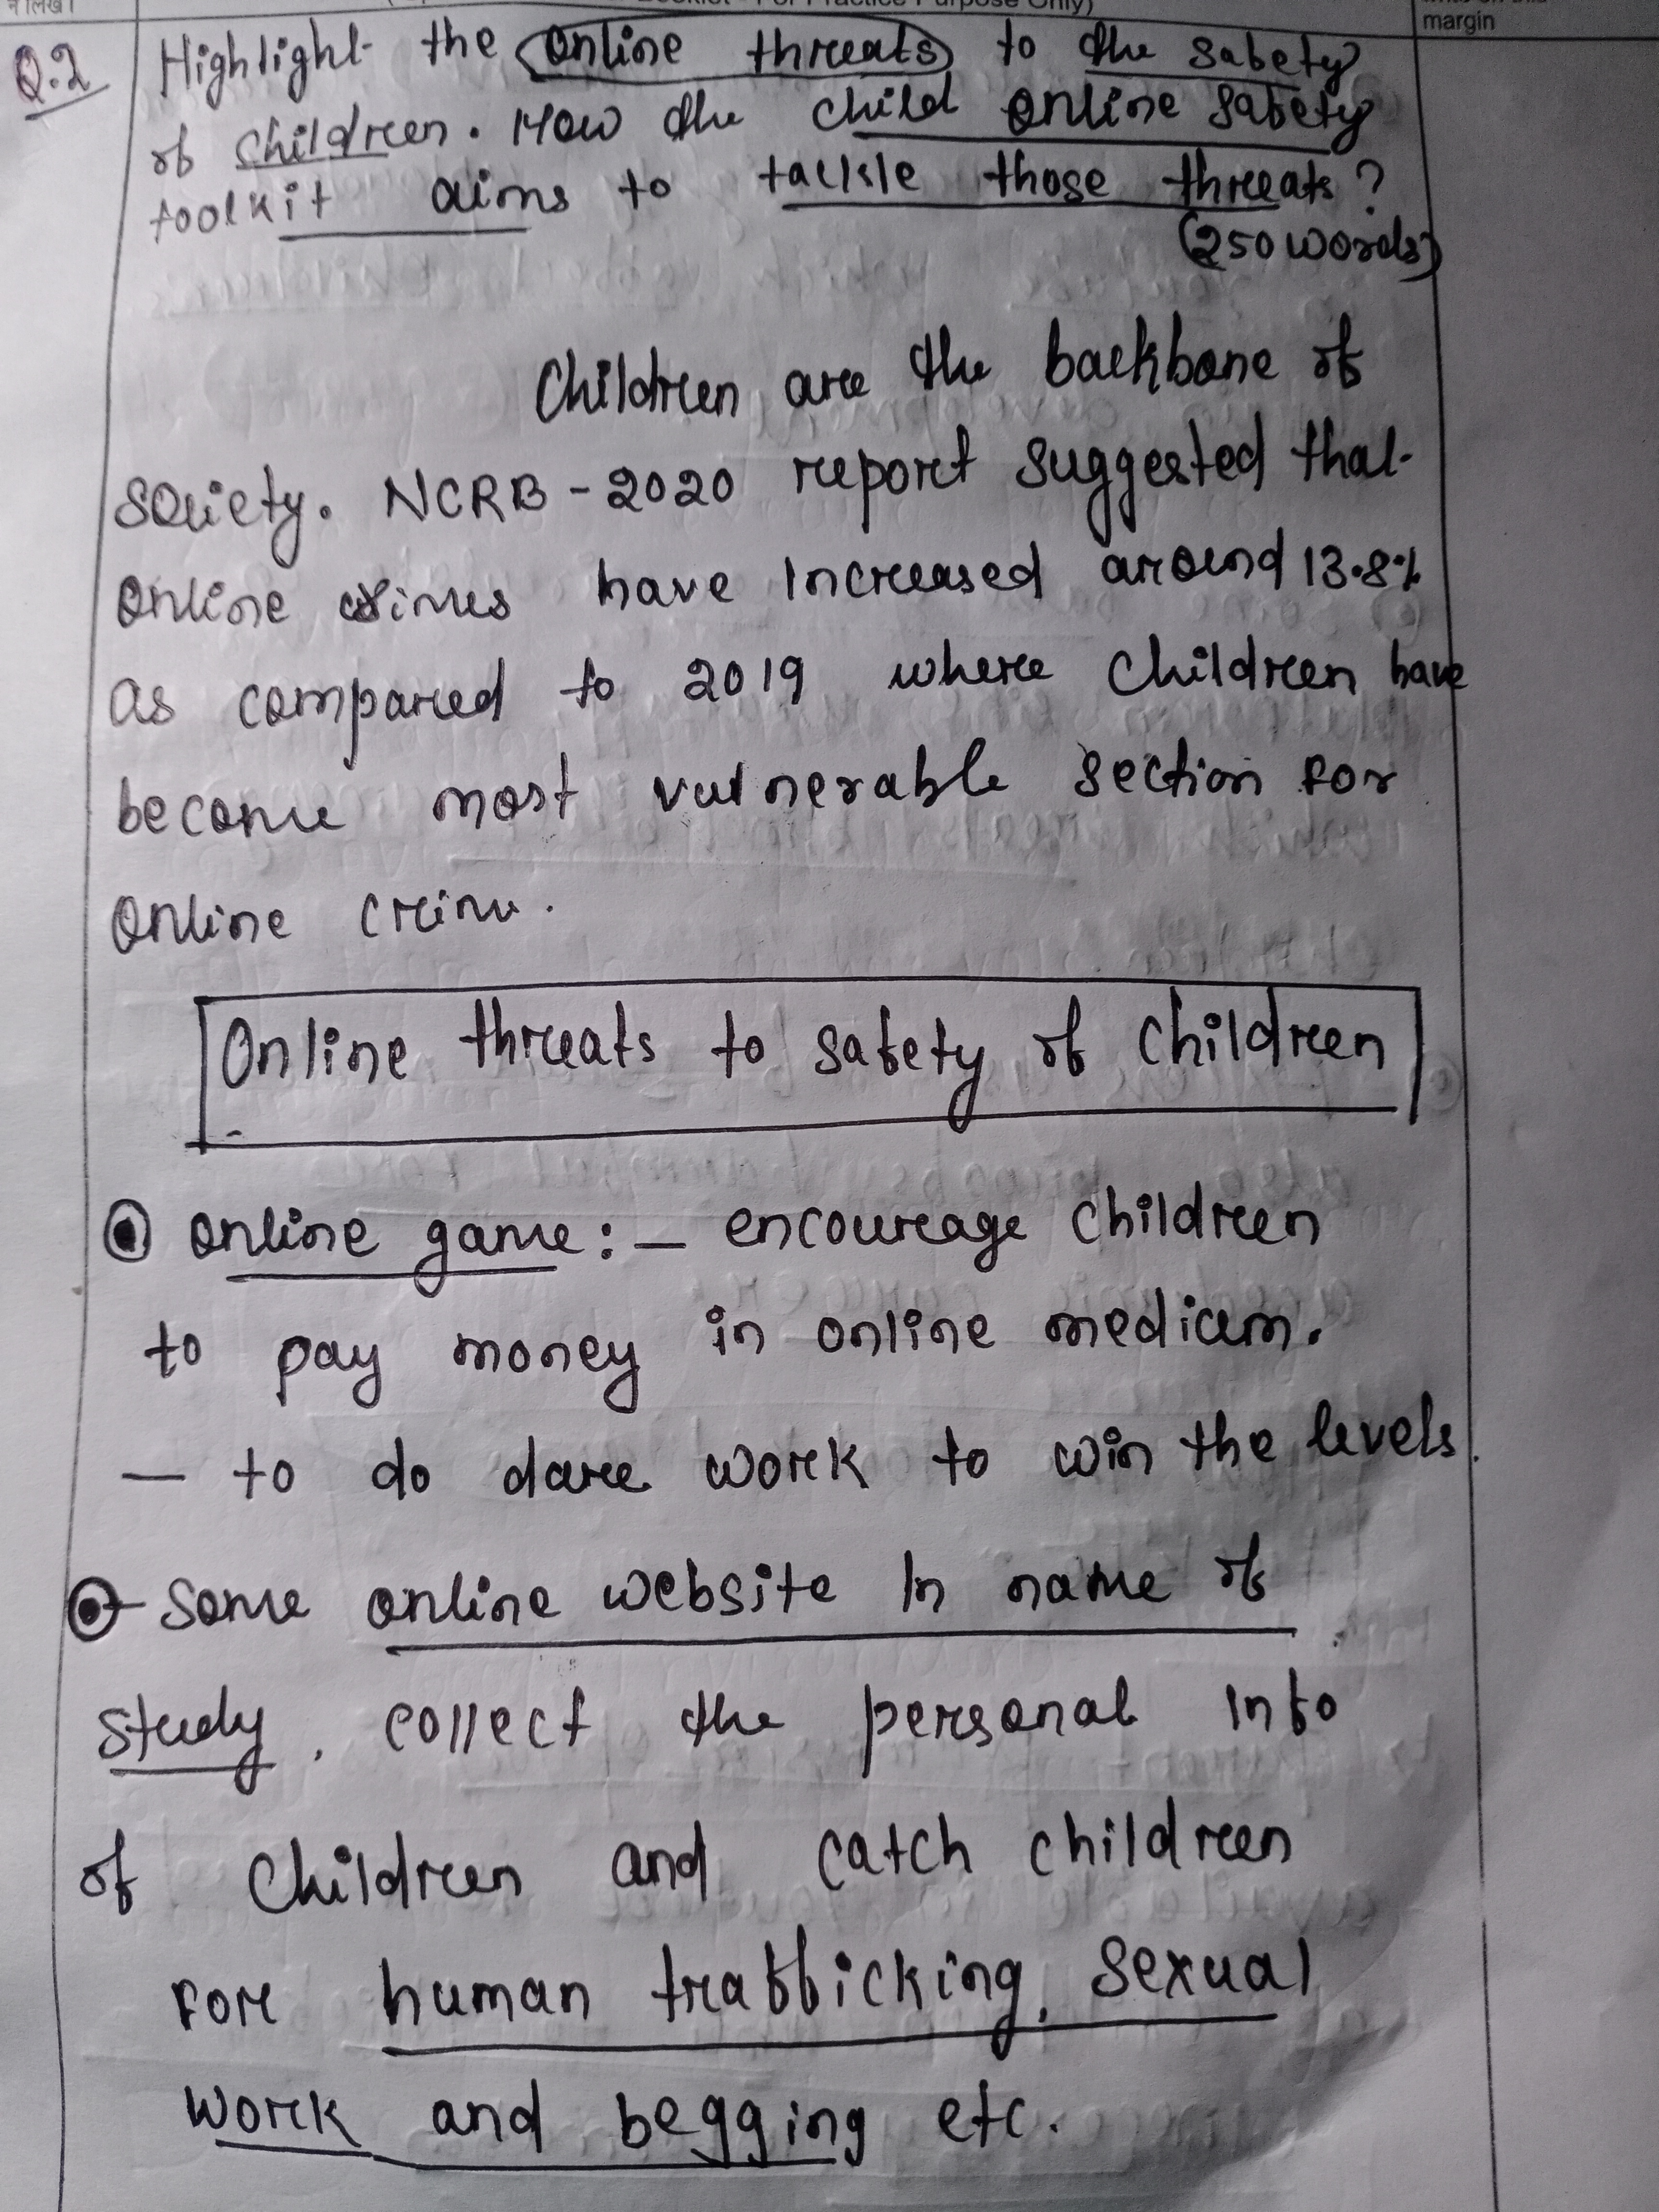 Purpose Only)
margin
Q.2 Highlight the online threats to the safety
of children. How the child online safety
toolkit aims to tackle those threats?
(250 words)
Children are the backbone of
society. NCRB - 2020 report suggested that
online crimes have increased around 13.8%
as compared to 2019 where children have
become most vulnerable section for
online crime.
Online threats to safety of children
online game :- encourage children
to pay money in online medium.
- to do dare work to win the levels.
Some online website in name of
study, collect the personal info
of children and catch children
for human trafficking, sexual
work and begging etc.